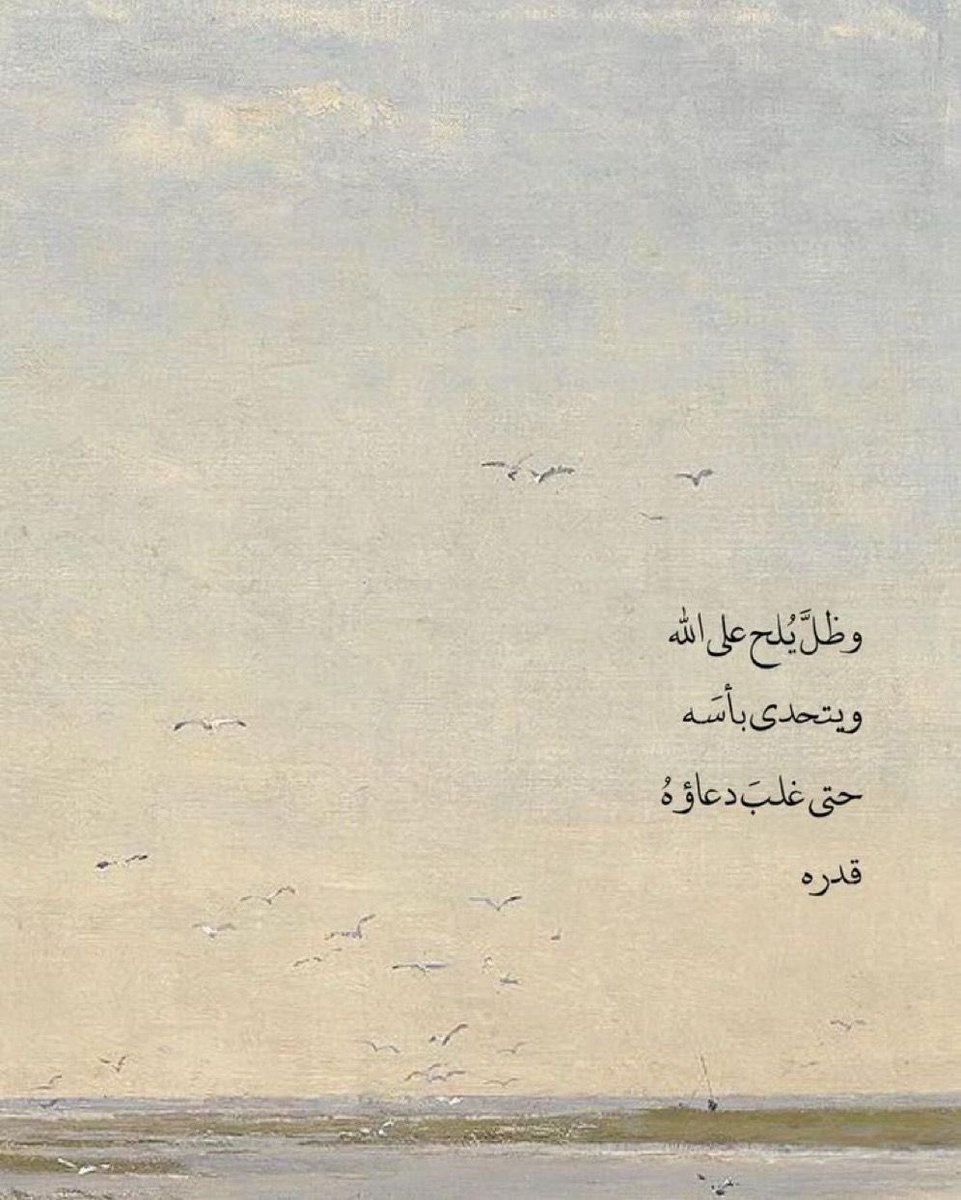 وظلَّ يُلح على الله
ويتحدى بأسَه
حتى غلبَ دعاؤهُ
قدره